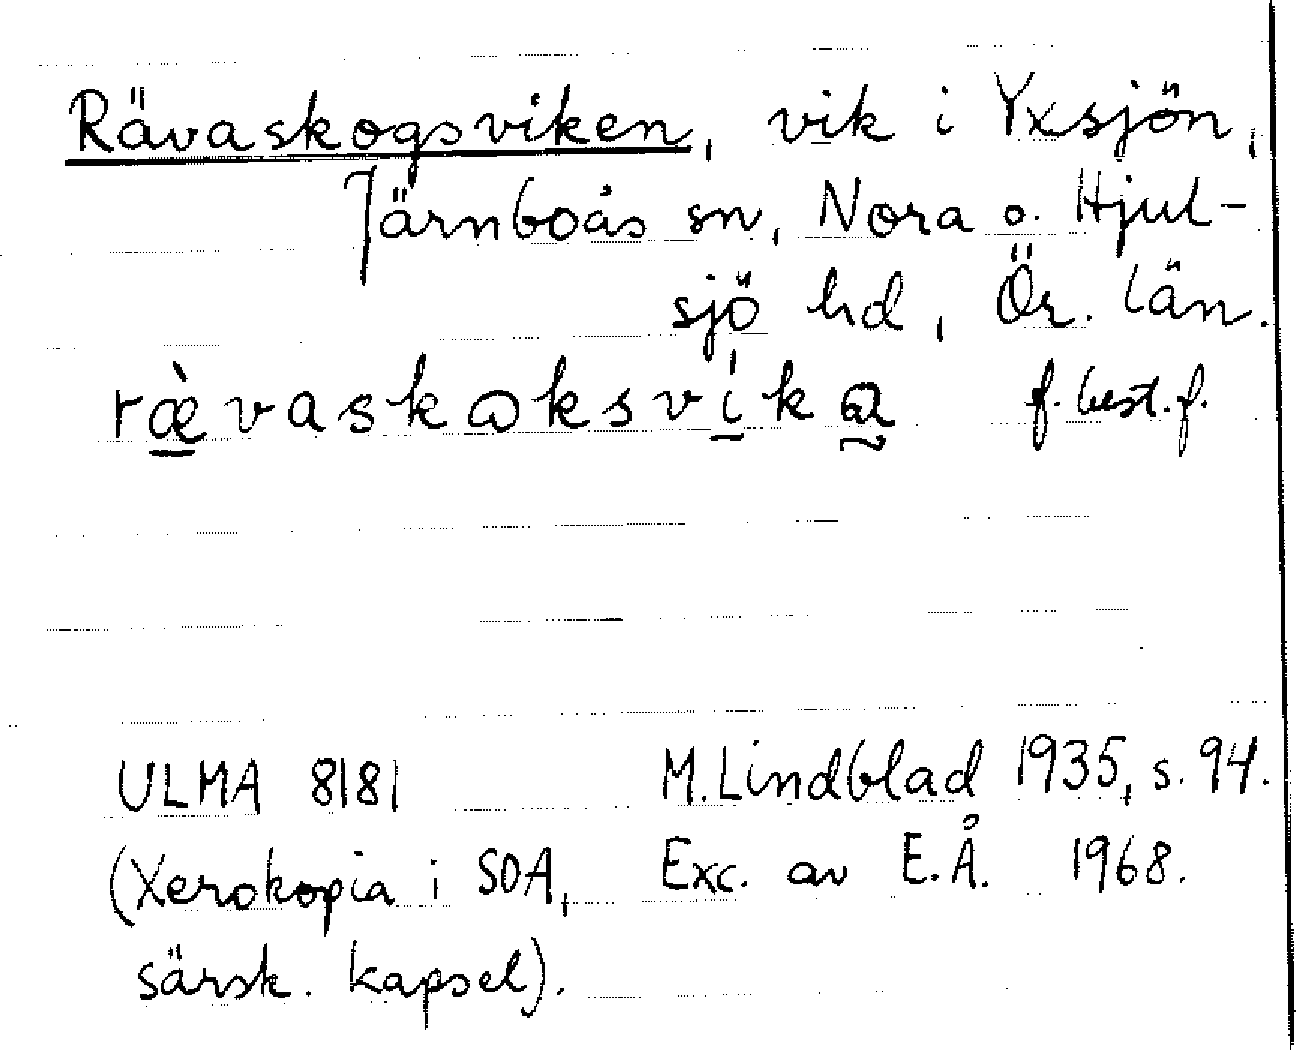 Rävaskogsviken, vik i Yxsjön,
Järnboås sn, Nora o. Hjul-
sjö hd, Ör. län.
ræ̀vaskɷksvíka f. best. f.
ULMA 8181 M. Lindblad 1935, s. 94.
(Xerokopia i SOA, Exc. av E.Å. 1968.
särsk. kapsel).